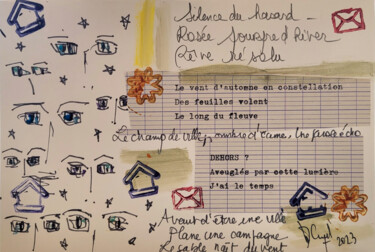 Silence du hasard -
Rosée d'River
Rêve
Le vent d'automne en constellation
Des feuilles volent
Le long du fleuve
Le champ de ville, d'âme,
DEHORS ?
Aveuglés par cette lumière
J'ai le temps
Avant d'être une ville
Plane une campagne
Le sable naît du vent
2023